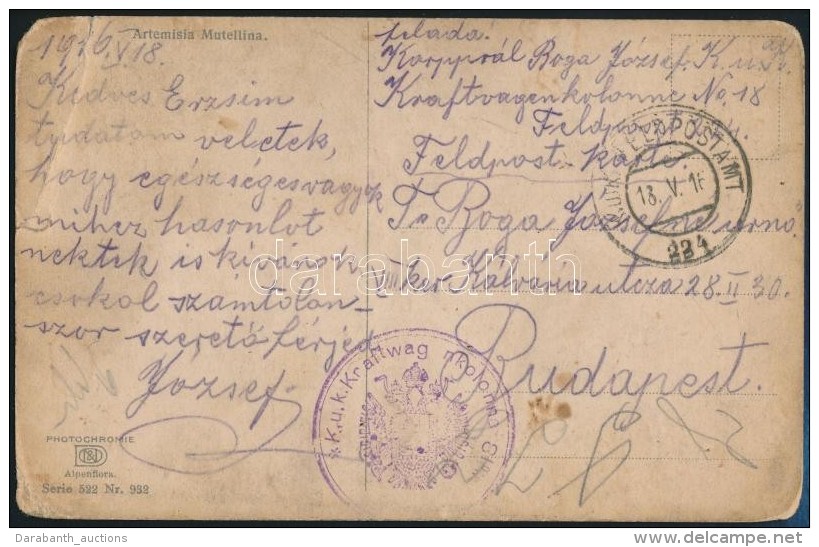 Artemisia Mutellina.
1916 V 18.
Kedves Erzsim
tudatom veletek,
hogy egészséges vagyok
mihez hasonlót
nektek is kívánok
csokol számtalan-
szor szerető férjed
József
PHOTOCHROMIE
Alpenflora.
Serie 522 Nr. 932
felada:
Korpprál Boga József. K. u. k.
Kraftvagenkolonne No 18
Feldpost
Feldpost-karte
T. Boga Józsefné urnő
VIII ker Kálvaria utcza 28. II 30.
Budapest.
FELDPOSTAMT
18. V. 16
224
* K.u.k. Kraftwag nkolonne
darabanth
Darabanth_auctions
www.delcampe.net